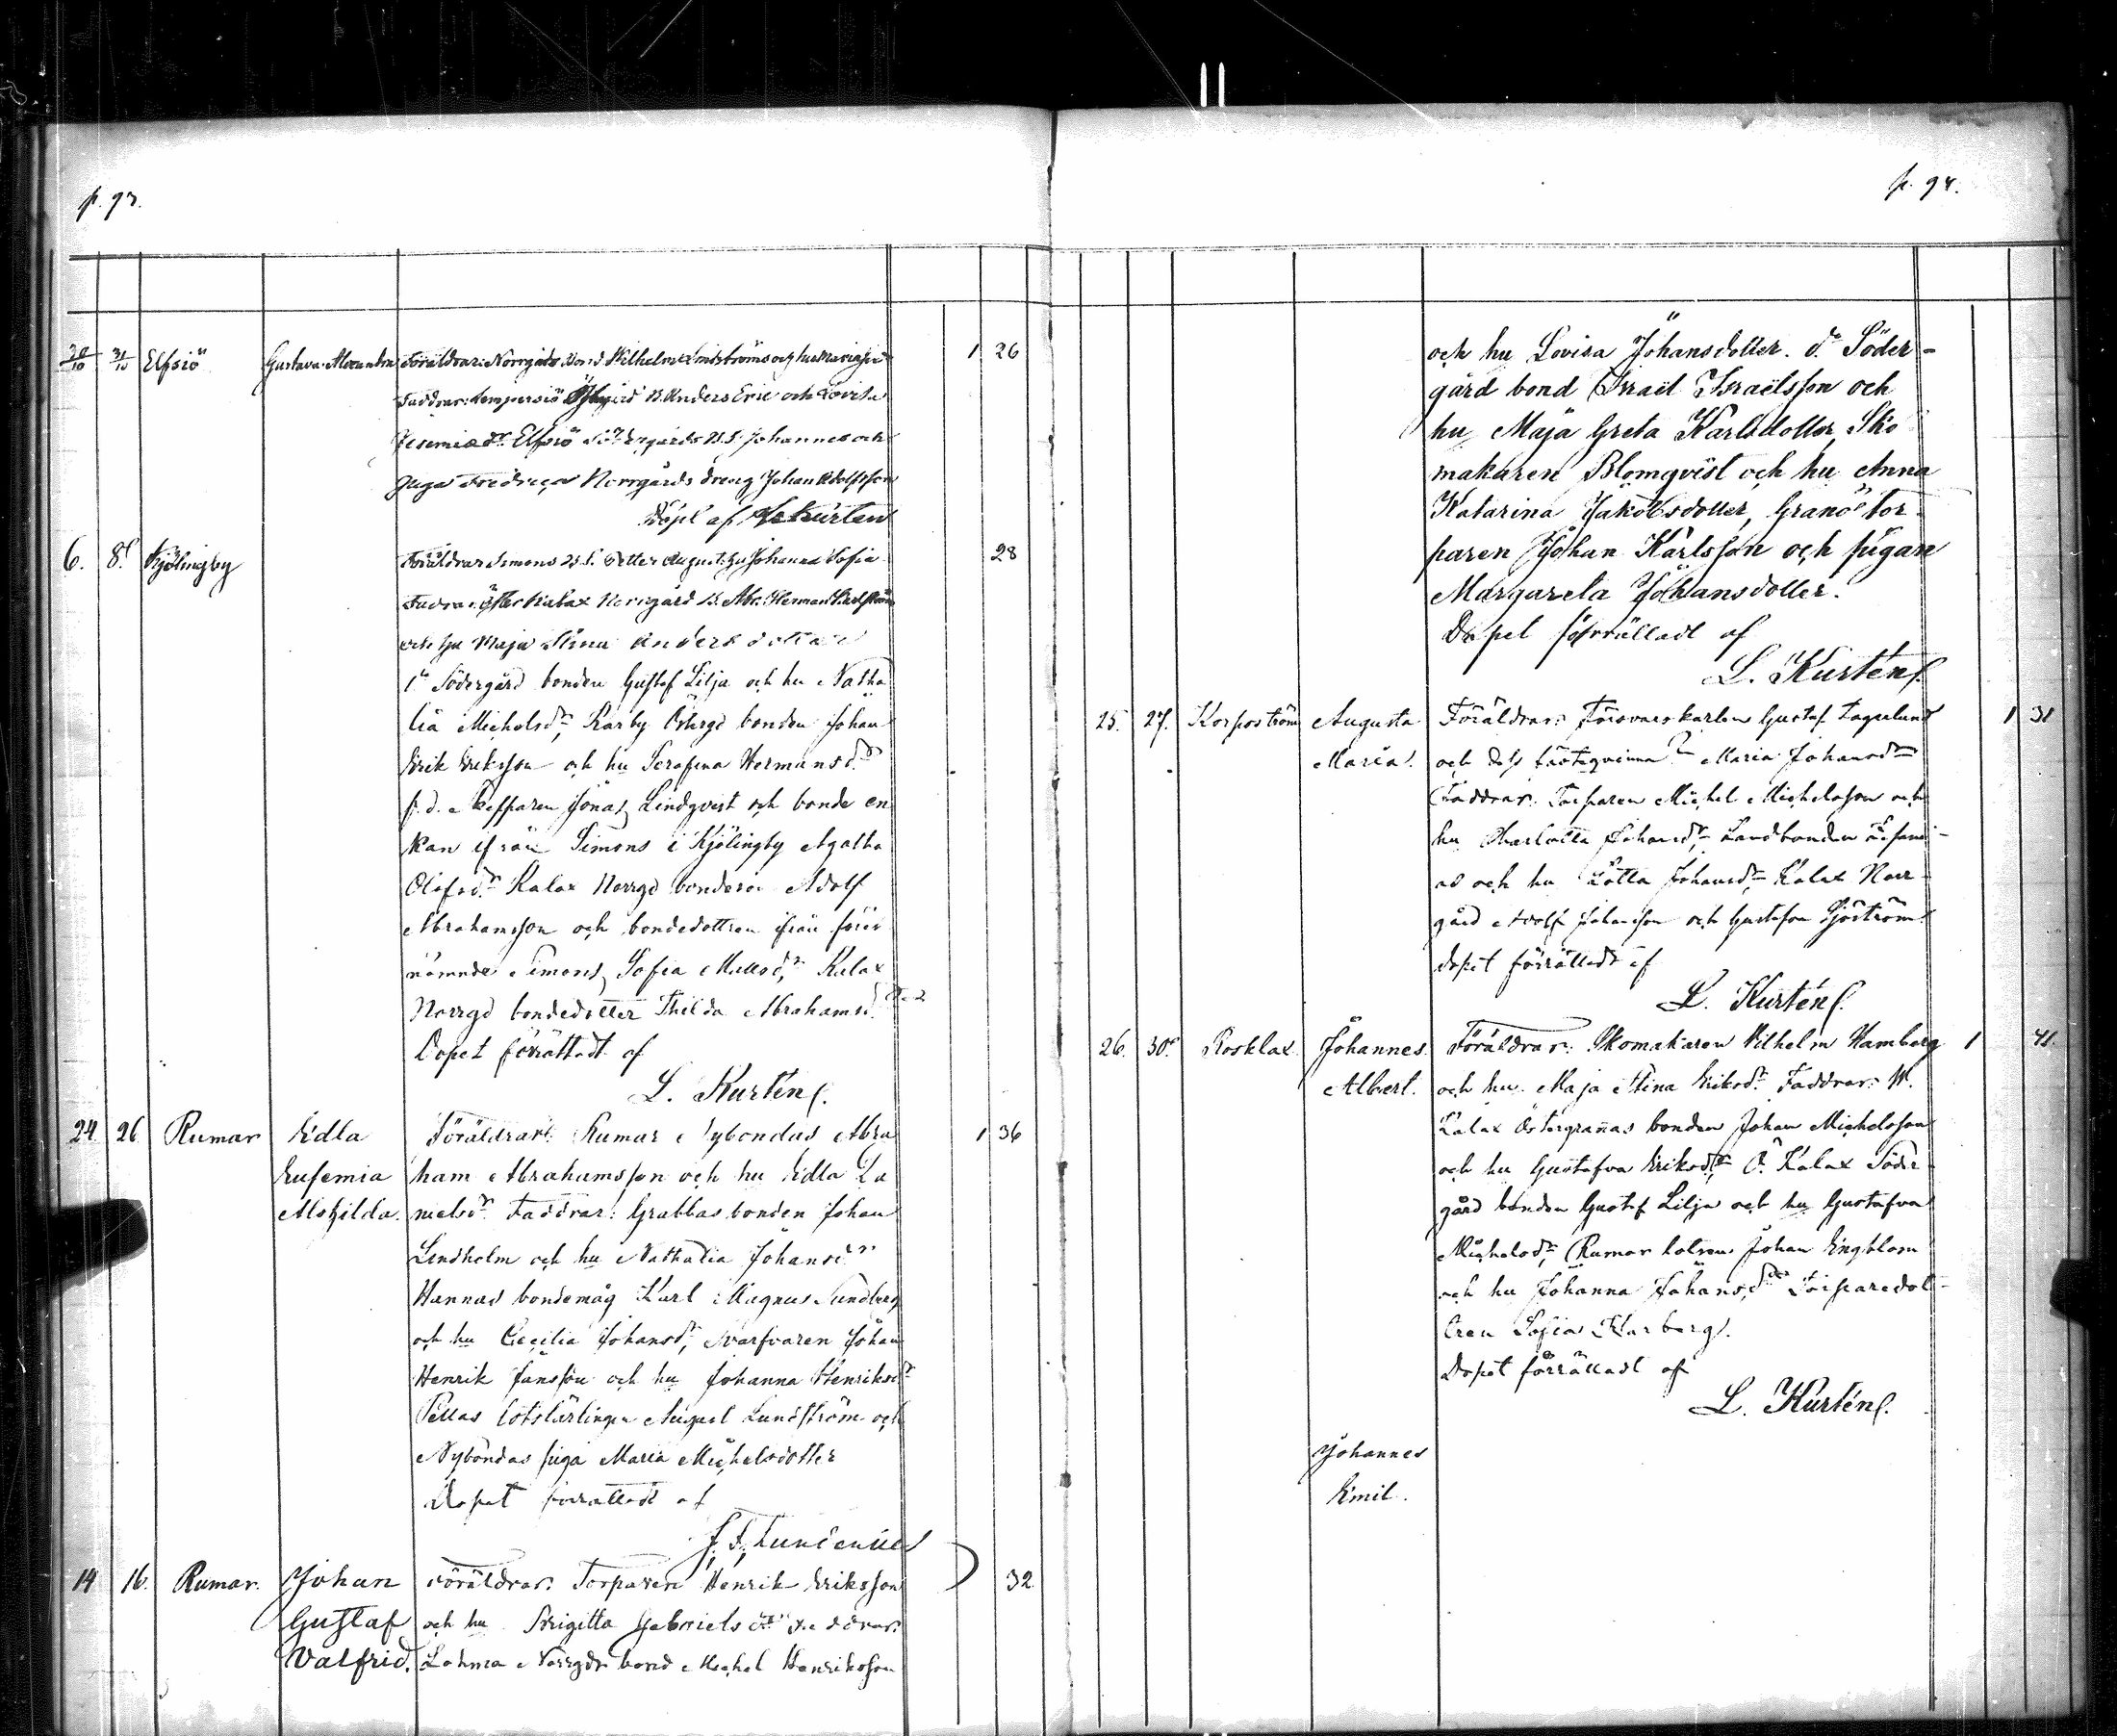 p. 93.
30/10 31/10 Elfsiö Gustava Alexandra Föräldrar: Norrgårds Bond Wilhelm Lindströms och hu Maria 1 26
Faddrar: B. Anders Eric och Lovisa
Elfsiö Södergårds B. S. Johannes och
Norrgårds dreng Johan Adolfsson
Döpt af Kurten
6. 8. Kjölingby Föräldrar Simons B. S. Petter August hu Johanna Sofia 28
Kalax Norrgård B. Abr. Herman
och hu Maja Stina Andersdotter
Södergård bonden Gustaf Lilja och hu Natha
lia Michelsdr, Karby Östergd bonden Johan
Erik Eriksson och hu Serafina Hermansdr
f. d. Jonas Lindqvist och bonde en
kan ifrån Simons i Kjölingby Agatha
Olofsdr Kalax Norrgd bondeson Adolf
Abrahamsson och bondedottren ifrån förer
nämnde Simons, Sofia Matsdr, Kalax
Norrgd bondedotter Thilda Abrahamsd.
Dopet förrättadt af
L. Kurtén.
24. 26. Rumar Edla Föräldrar: Rumar Nybondas Abra 1 36
Eufemia ham Abrahamsson och hu Edla Da
Mathilda. nielsdr. Faddrar: Grabbas bonden Johan
Lindholm och hu Nathalia Johansdr
Hannas bondemåg Karl Magnus Sundberg
och hu Cecilia Johansdr, Svarfvaren Johan
Henrik Jansson och hu Johanna Henriksdr
Pellas lotslärlingen August Lundström och
Nybondas piga Maria Michelsdotter
Dopet förrättadt af
14 16. Rumar. Johan Föräldrar: Torparen Henrik Eriksson 32
Gustaf och hu Brigitta Gabrielsdr Faddrar:
Valfrid. Lohma Norrgds bond Michel Henriksson
p. 94.
och hu Lovisa Johansdotter. do Söder-
gård bond Israel Israelsson och
hu Maja Greta Karlsdotter, Sko
makaren Blomqvist och hu Anna
Katarina Jakobsdotter, Granö tor-
paren Johan Karlsson och pigan
Margareta Johansdotter.
Dopet förrättadt af
L. Kurtén.
25. 27. Korpoström Augusta Föräldrar: Försvarskarlen Gustaf Fagerlund 1 31
Maria. och dess fästeqvinna Maria Johansdr
Faddrar: Torparen Michel Michelsson och
hu Charlotta Johansdr, Landbonden
as och hu Lotta Johansdr, Kalax Norr-
gård Adolf Johansson och Gustafva Sjöström
Dopet förrättadt af
L. Kurtén.
26. 30. Rosklax Johannes Föräldrar: Skomakaren Vilhelm Hamberg 1 41
Albert. och hu Maja Stina Eriksdr Faddrar: W.
Kalax Östergrannas bonden Johan Michelsson
och hu Gustafva Eriksdr, Ö. Kalax Söder-
gård bonden Gustaf Lilja och hu Gustafva
Michelsdr, Rumar lotsen Johan Engblom
och hu Johanna Johansdr Torparedot-
tren Sofia Karberg.
Dopet förrättadt af
L. Kurtén.
Johannes
Emil.